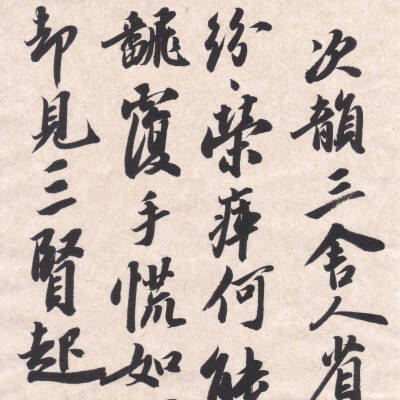 次韻三舍人省
紛々榮瘁何能
飜覆手慌如
却見三賢起